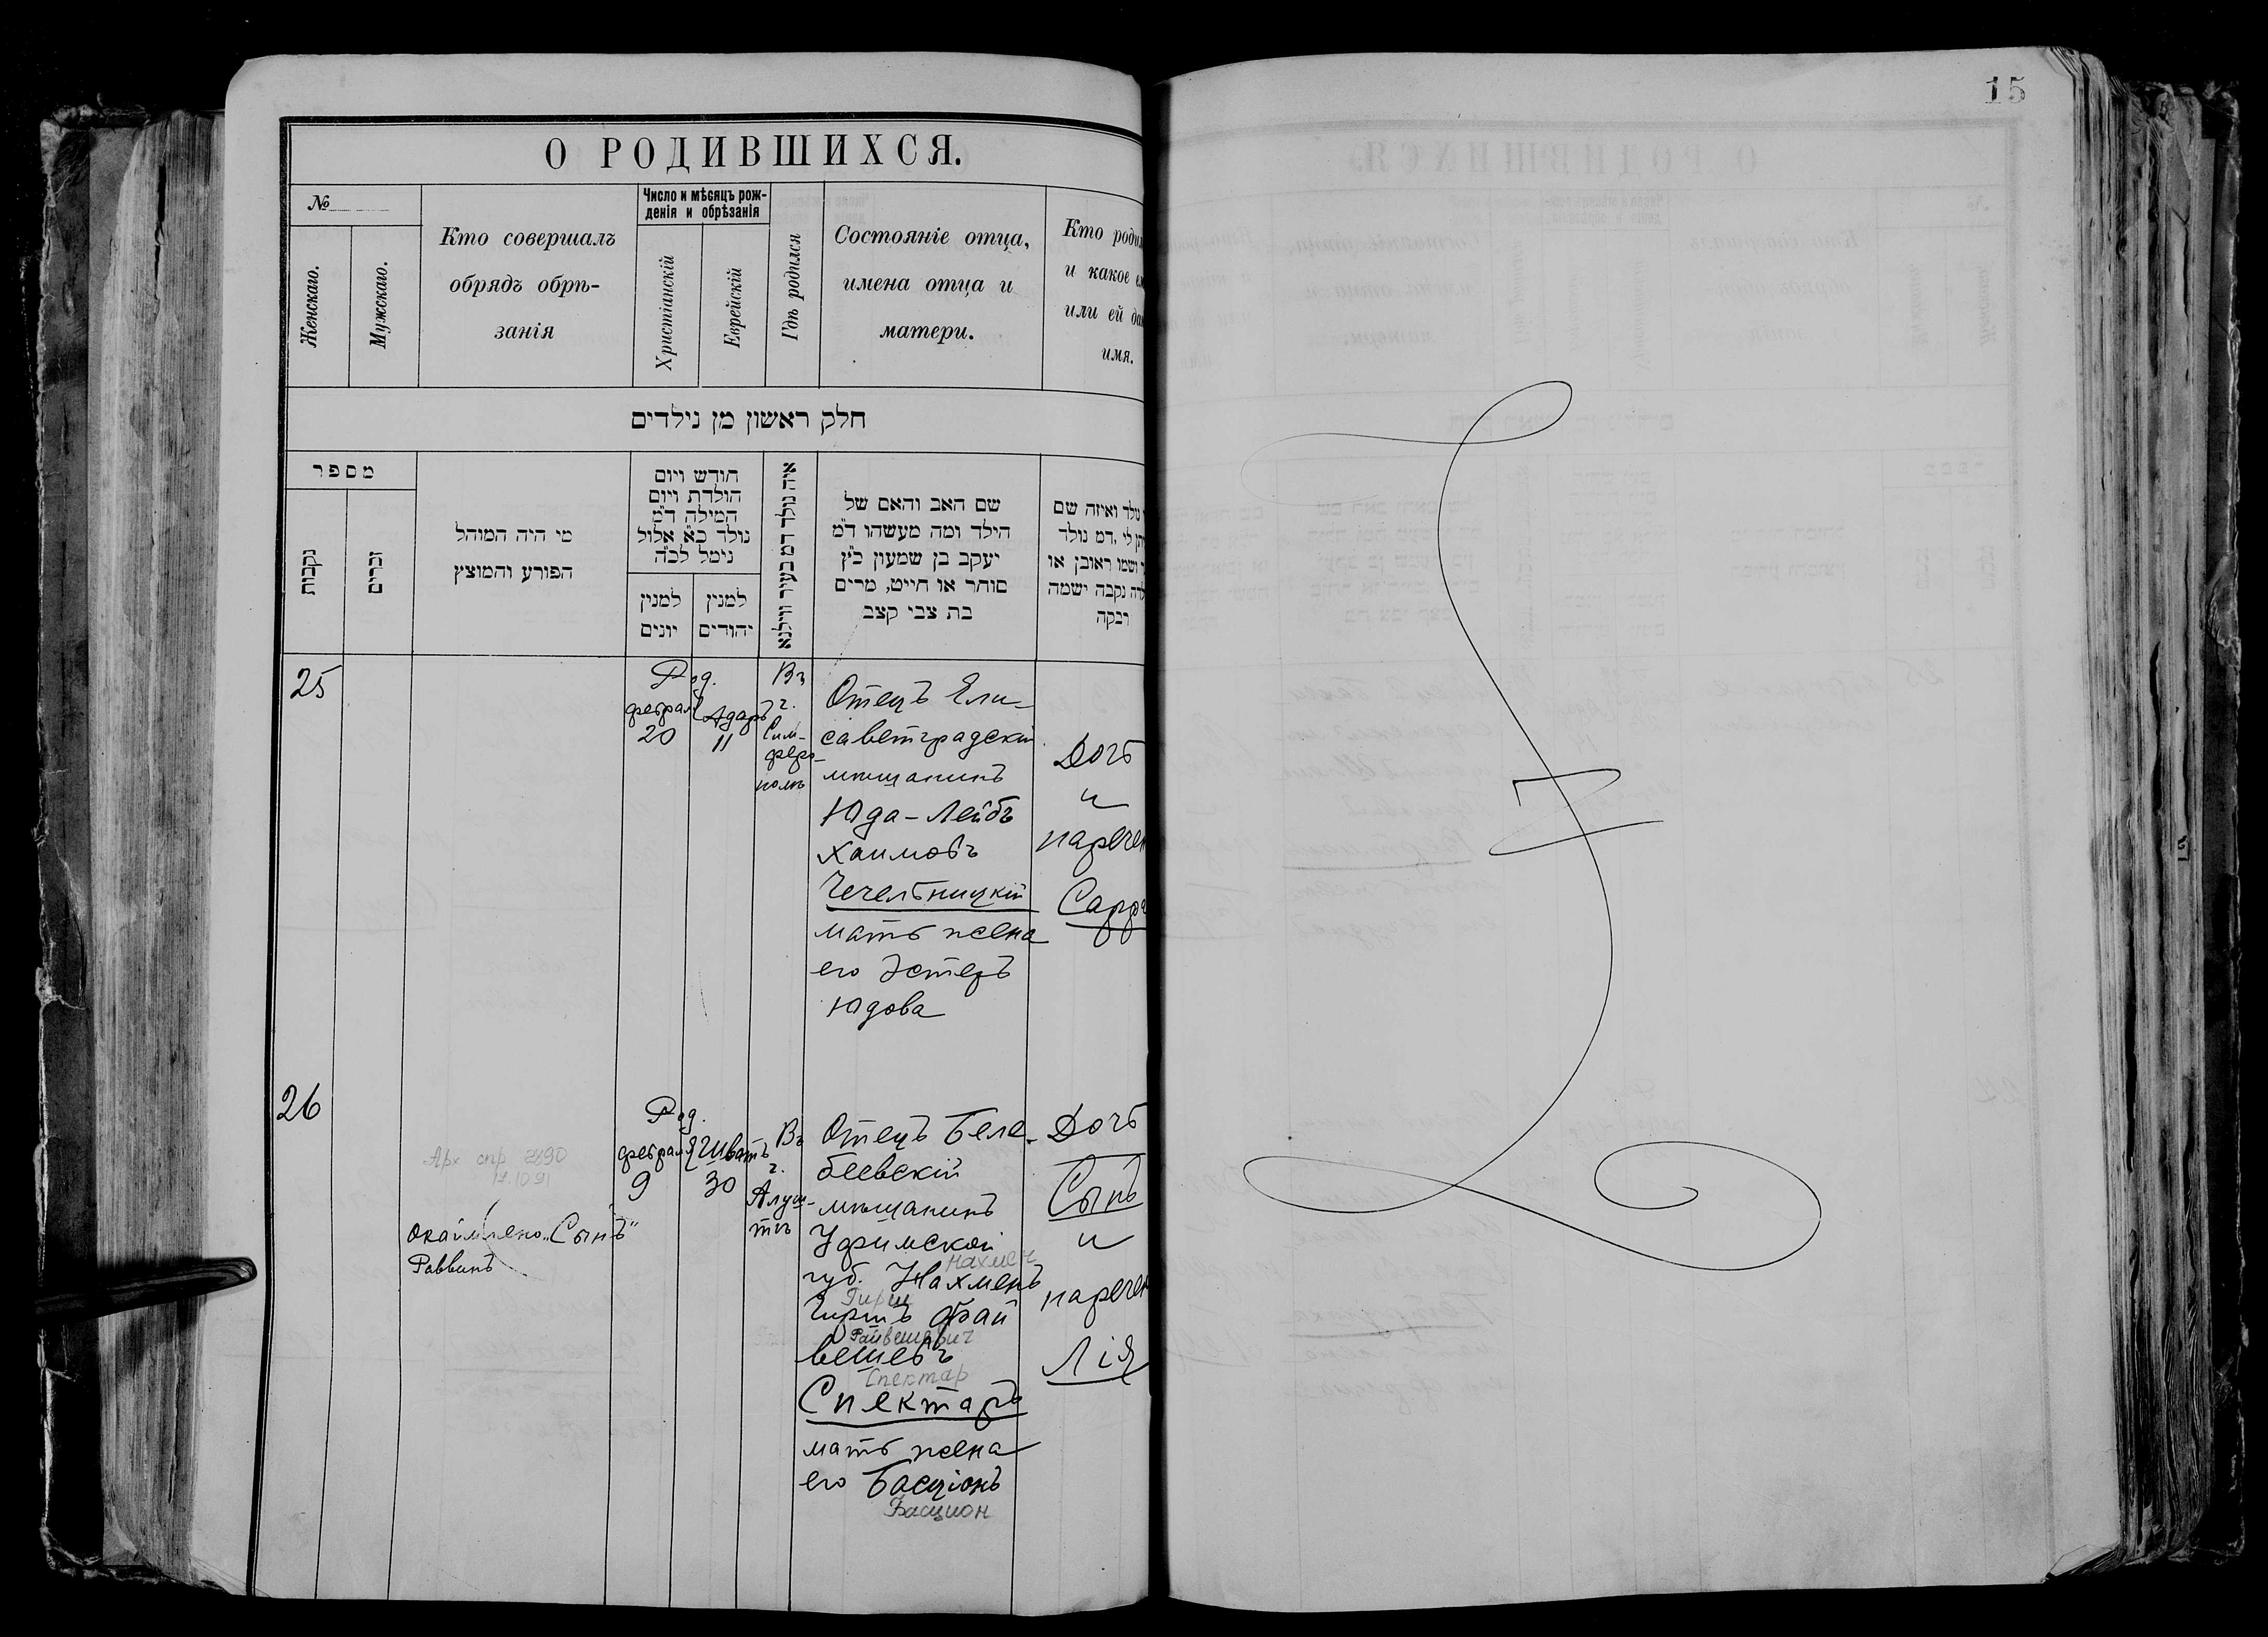 15
О РОДИВШИХСЯ.
№
Женскаго.
Мужскаго.
Кто совершалъ
обрядъ обрѣ-
занія
Число и мѣсяцъ рож-
денія и обрѣзанія
Христіанскій
Еврейскій
Гдѣ родился
Состояніе отца,
имена отца и
матери.
Кто роди
и какое е
или ей да
имя.
חלק ראשון מן נילדים
מספר
נקבות
זכרים
מי היה המוהל
הפורע והמוצץ
חודש ויום
הולדת ויום
המילה ד״מ
נולד כ״א אלול
נימל לכ״ה
למנין
יונים
למנין
יהודים
איה נולד דמ בעיר ווילנא
שם האב והאם של
הילד ומה מעשהו ד״מ
יעקב בן שמעון כ״ץ
סוחר או חייט, מרים
בת צבי קצב
נולד ואיזה שם
תן לי ,דמ נולד
ושמו ראובן או
לדה נקבה ישמה
רבקה
25
Род.
февраля
20
Адаръ
11
Въ
г.
Сим-
феро-
полѣ
Отецъ Ели-
саветградскій
мѣщанинъ
Юда-Лейбъ
Хаимовъ
Чечельницкій
мать жена
его Эстеръ
Юдова
Дочь
и
наречен
Сарра
26
Арх спр 2890
17.10 91
окаймлено „Сынъ“
Раввинъ
Род.
февраля
9
Шватъ
30
Въ
г.
Алуш-
тѣ
Отецъ Беле-
беевскій
мѣщанинъ
Уфимской
Нахмен
губ. Нахменъ
Гирш
Гиршъ Фай
Файвешевич
вешевъ
Спектар
Спектаръ
мать жена
его Басціонъ
Басцион
Дочь
Сынъ
и
наречен
Лія